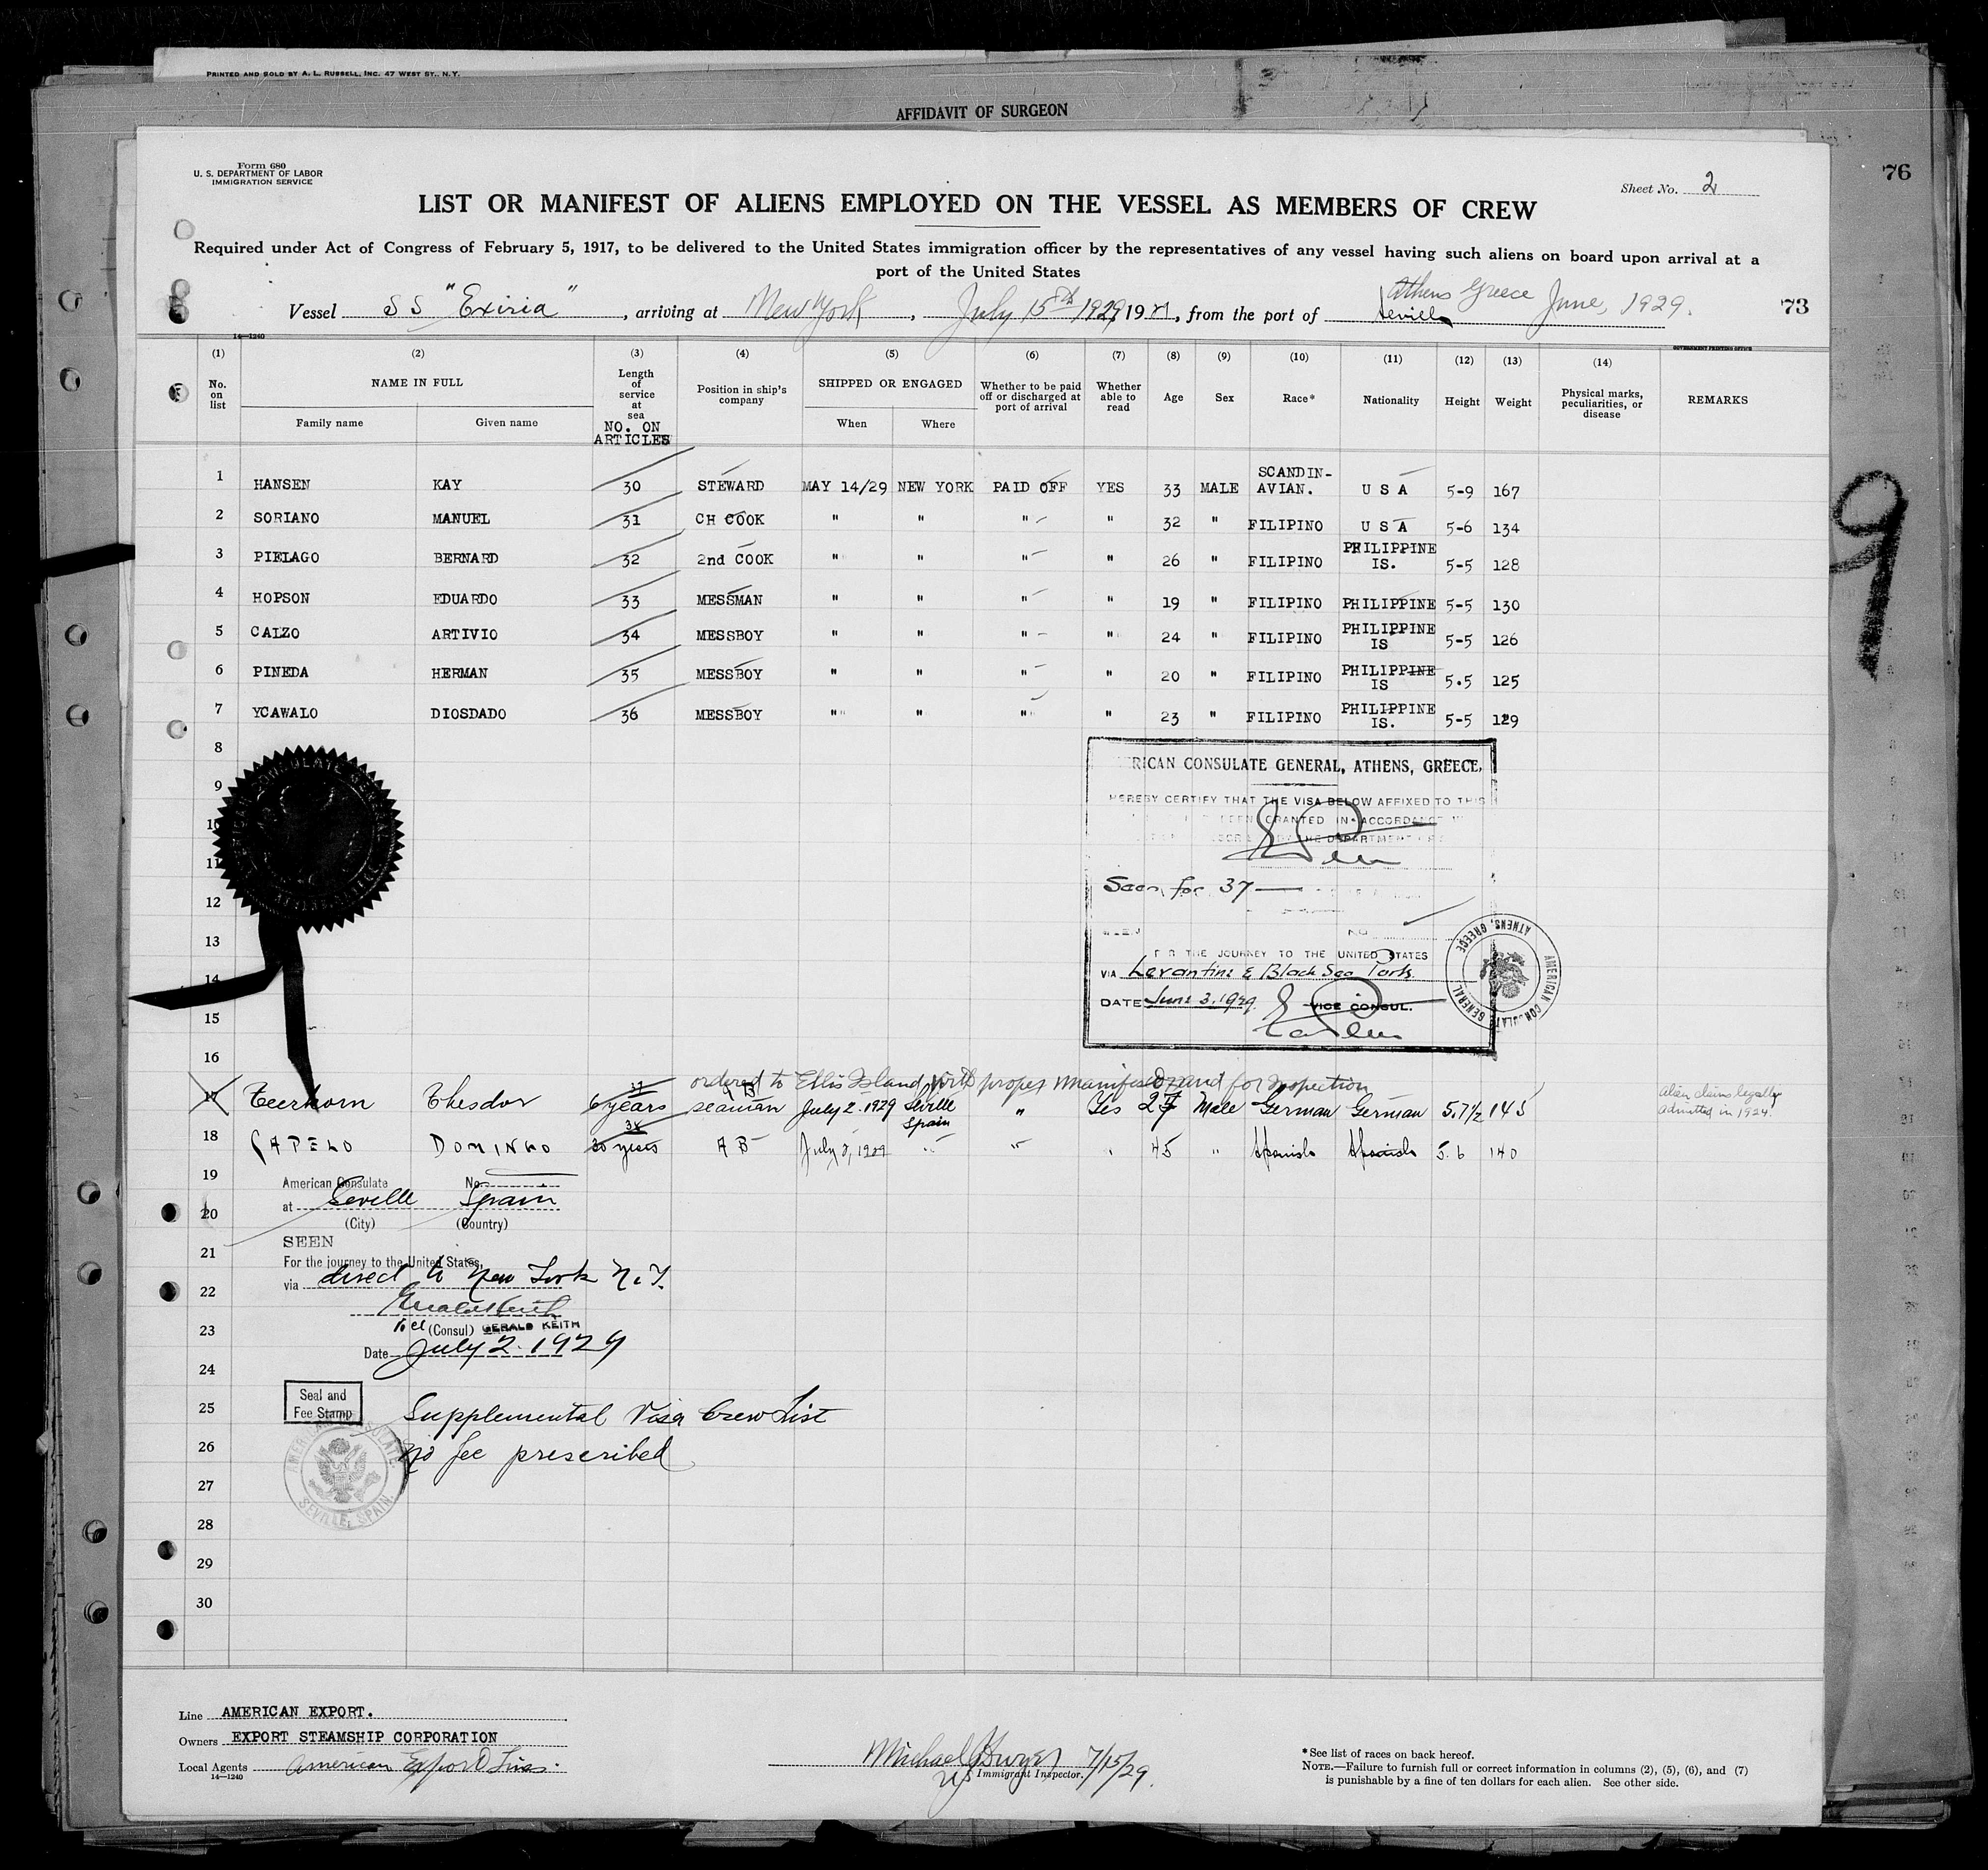 PRINTED AND SOLD BY A. L. RUSSELL, INC. 47 WEST ST., N.Y.
AFFIDAVIT OF SURGEON
76
Form 680
U. S. DEPARTMENT OF LABOR
IMMIGRATION SERVICE
Sheet No. 2
LIST OR MANIFEST OF ALIENS EMPLOYED ON THE VESSEL AS MEMBERS OF CREW
Required under Act of Congress of February 5, 1917, to be delivered to the United States immigration officer by the representatives of any vessel having such aliens on board upon arrival at a
port of the United States
Vessel SS "Exiria", arriving at New York, July 15th 1929, 19, from the port of Seville Athens Greece June, 1929.
73
14—1240
GOVERNMENT PRINTING OFFICE
(1) (2) (3) (4) (5) (6) (7) (8) (9) (10) (11) (12) (13) (14)
No. on list NAME IN FULL Length of service at sea Position in ship's company SHIPPED OR ENGAGED Whether to be paid off or discharged at port of arrival Whether able to read Age Sex Race* Nationality Height Weight Physical marks, peculiarities, or disease REMARKS
Family name Given name NO. ON ARTICLES When Where
1 HANSEN KAY 30 STEWARD MAY 14/29 NEW YORK PAID OFF YES 33 MALE SCANDIN-AVIAN. U S A 5-9 167
2 SORIANO MANUEL 31 CH COOK " " " " 32 " FILIPINO U S A 5-6 134
3 PIELAGO BERNARD 32 2nd COOK " " " " 26 " FILIPINO PHILIPPINE IS. 5-5 128
4 HOPSON EDUARDO 33 MESSMAN " " " " 19 " FILIPINO PHILIPPINE 5-5 130
5 CALZO ARTIVIO 34 MESSBOY " " " " 24 " FILIPINO PHILIPPINE IS 5-5 126
6 PINEDA HERMAN 35 MESSBOY " " " " 20 " FILIPINO PHILIPPINE IS 5.5 125
7 YCAWALO DIOSDADO 36 MESSBOY " " " " 23 " FILIPINO PHILIPPINE IS. 5-5 129
9
8
9
10
11
12
13
14
15
16
RICAN CONSULATE GENERAL, ATHENS, GREECE.
HEREBY CERTIFY THAT THE VISA BELOW AFFIXED TO THIS
BEEN GRANTED IN ACCORDANCE
THE DEPARTMENT
Seen for 37
NO.
THE JOURNEY TO THE UNITED STATES
VIA Levantine & Black Sea Ports.
DATE June 3, 1929.
VICE CONSUL.
AMERICAN CONSULATE GENERAL ATHENS, GREECE.
ordered to Ellis Island with proper manifest and for inspection
17 Teerkorn Thesdor 37 6 years AB seaman July 2. 1929 Seville Spain " Yes 27 Male German German 5.7½ 145 Alien claims legally admitted in 1924.
18 CAPELO DOMINGO 38 30 years AB July 2, 1929 " " " 45 " Spanish Spanish 5.6 140
19
20
21
22
23
24
25
26
27
28
29
30
American Consulate No.
at Seville Spain
(City) (Country)
SEEN
For the journey to the United States,
via direct to New York N.Y.
(Consul) GERALD KEITH
Date July 2. 1929
Seal and
Fee Stamp
Supplemental Visa Crew List
No fee prescribed
AMERICAN CONSULATE SEVILLE, SPAIN.
Line AMERICAN EXPORT.
Owners EXPORT STEAMSHIP CORPORATION
Local Agents American Export Lines.
14—1240
Michael Dwyer 7/15/29.
US Immigrant Inspector.
* See list of races on back hereof.
NOTE.—Failure to furnish full or correct information in columns (2), (5), (6), and (7)
is punishable by a fine of ten dollars for each alien. See other side.